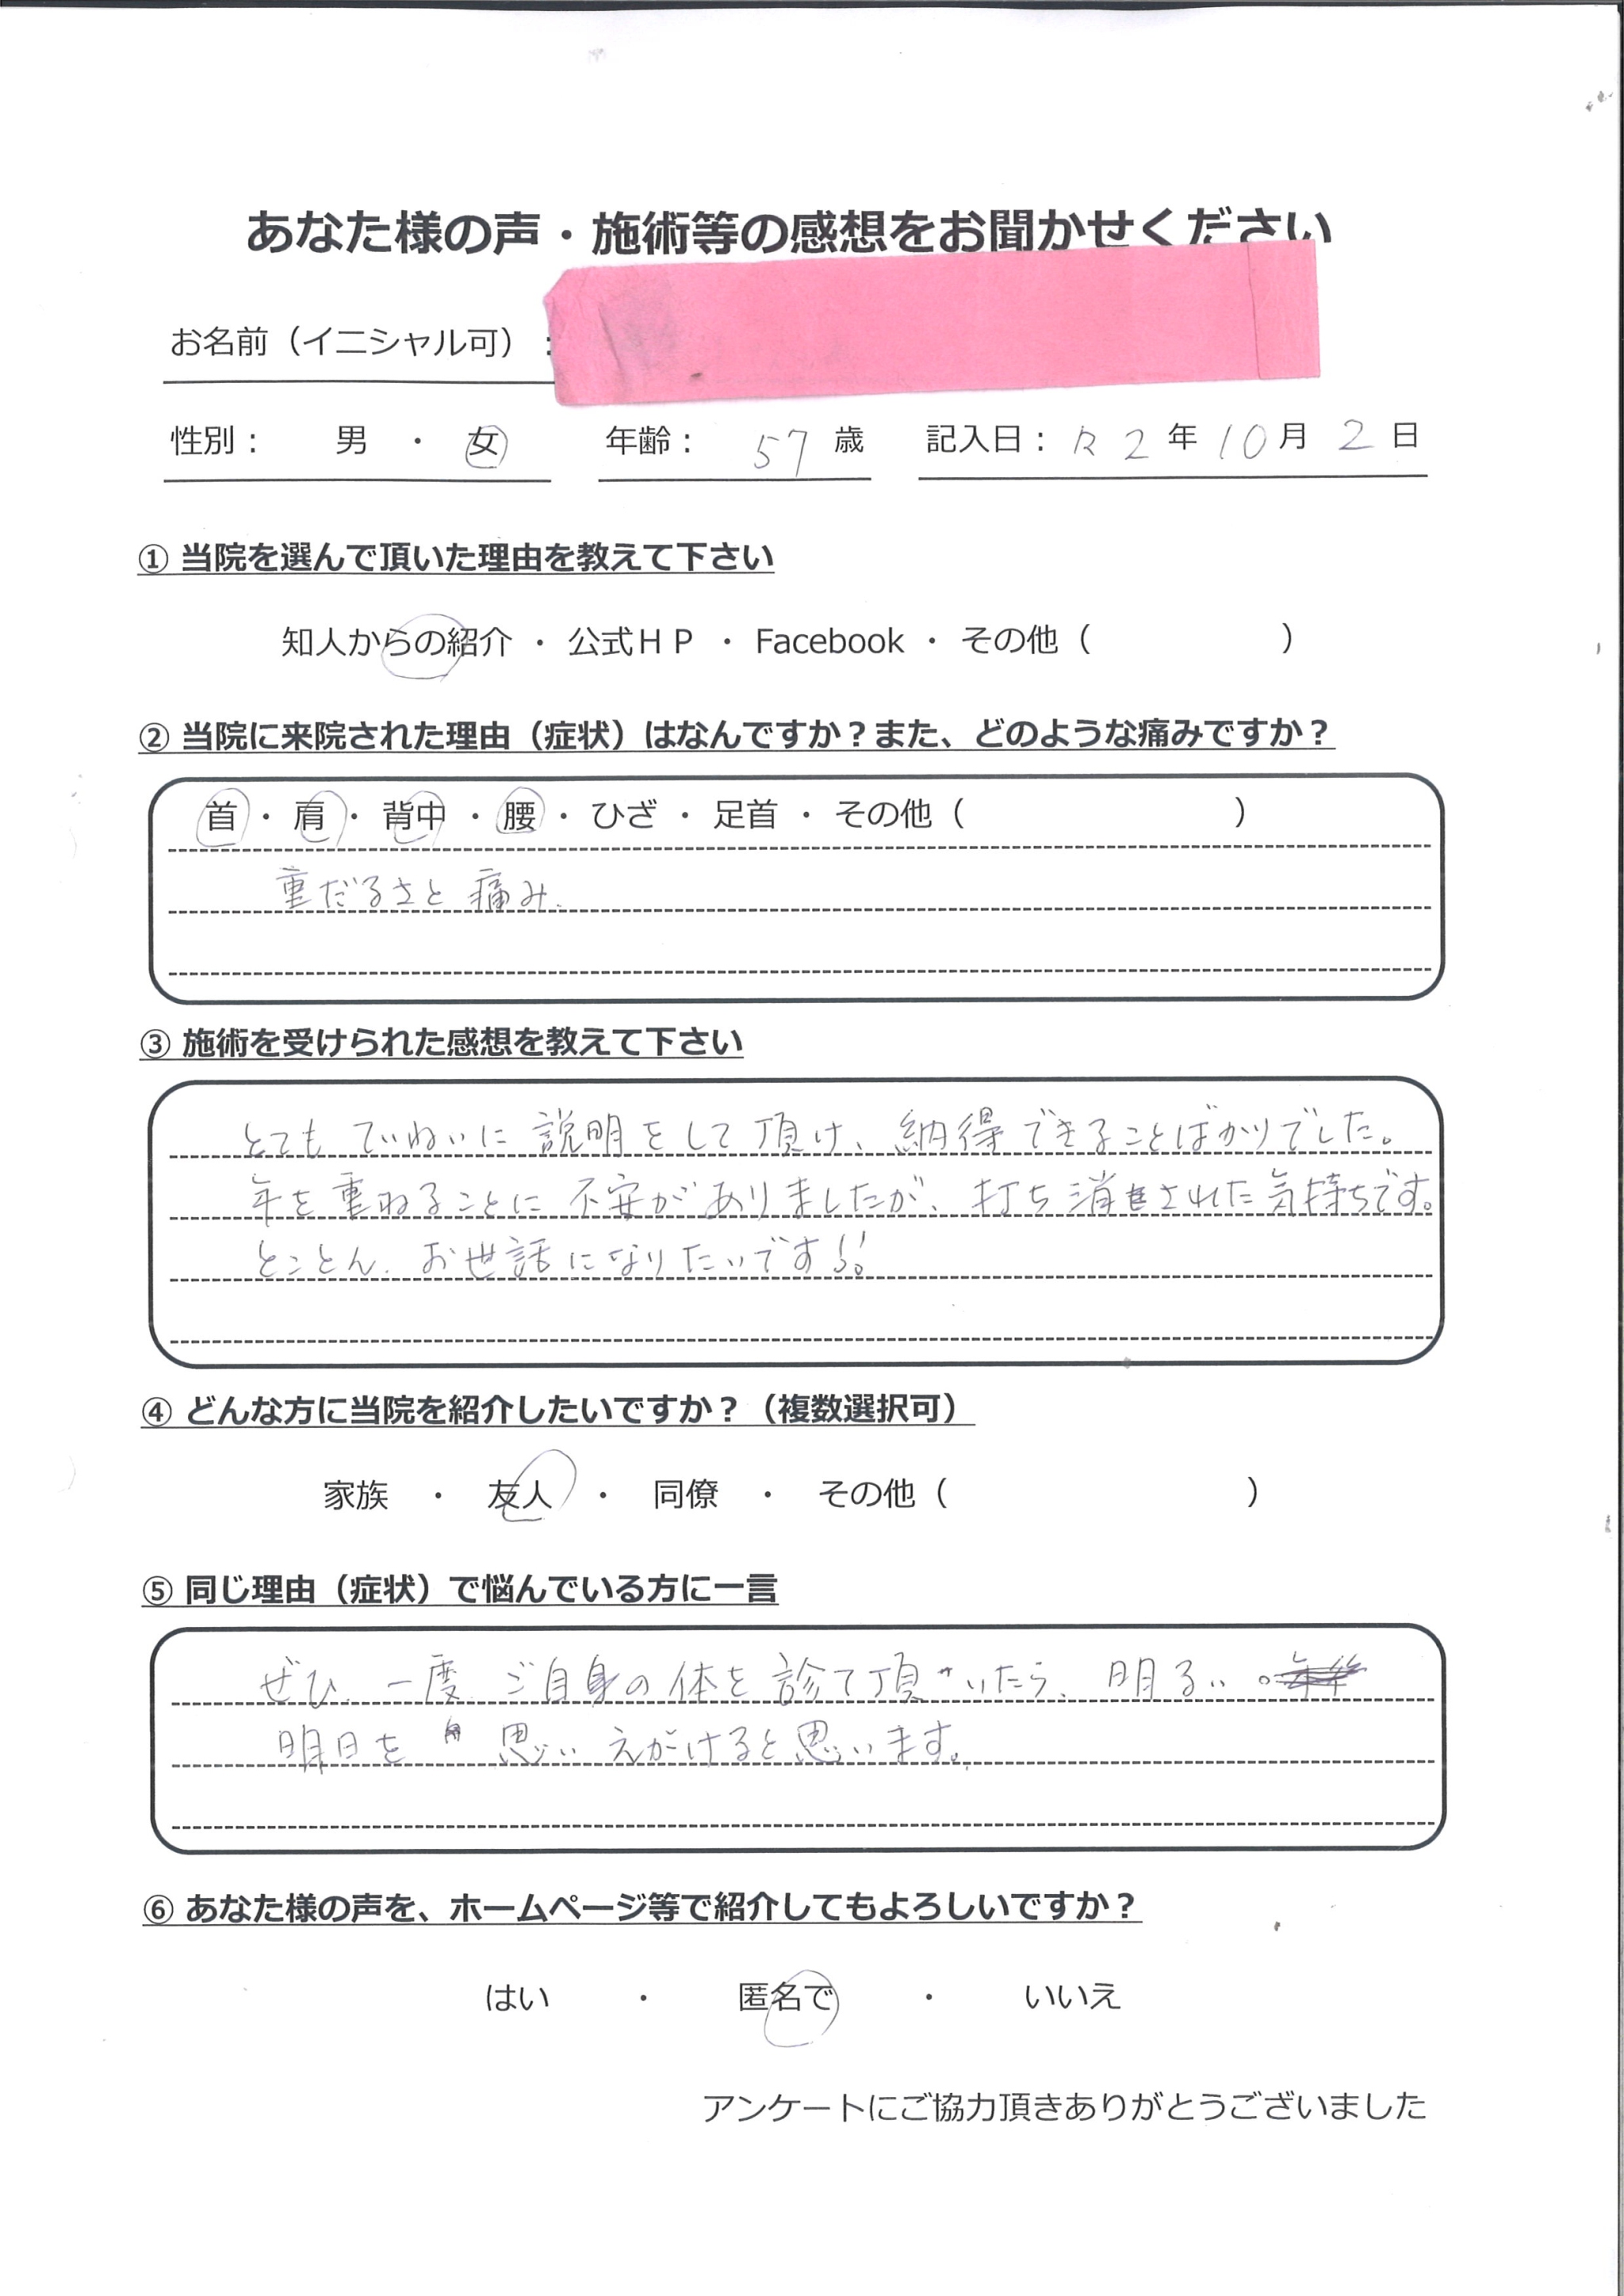 あなた様の声・施術等の感想をお聞かせください
お名前（イニシャル可）：
性別： 男 ・ 女 年齢： 57 歳 記入日： R2 年 10 月 2 日
① 当院を選んで頂いた理由を教えて下さい
知人からの紹介 ・ 公式ＨＰ ・ Facebook ・ その他（ ）
② 当院に来院された理由（症状）はなんですか？また、どのような痛みですか？
首 ・ 肩 ・ 背中 ・ 腰 ・ ひざ ・ 足首 ・ その他（ ）
重だるさと 痛み.
③ 施術を受けられた感想を教えて下さい
とても ていねいに 説明をして頂け、納得できることばかりでした。
年を重ねることに 不安がありましたが、打ち消された気持ちです。
とことん、お世話になりたいです!!
④ どんな方に当院を紹介したいですか？（複数選択可）
家族 ・ 友人 ・ 同僚 ・ その他（ ）
⑤ 同じ理由（症状）で悩んでいる方に一言
ぜひ、一度、ご自身の体を 診て頂いたら、明るい
明日を 思い えがけると思います。
⑥ あなた様の声を、ホームページ等で紹介してもよろしいですか？
はい ・ 匿名で ・ いいえ
アンケートにご協力頂きありがとうございました